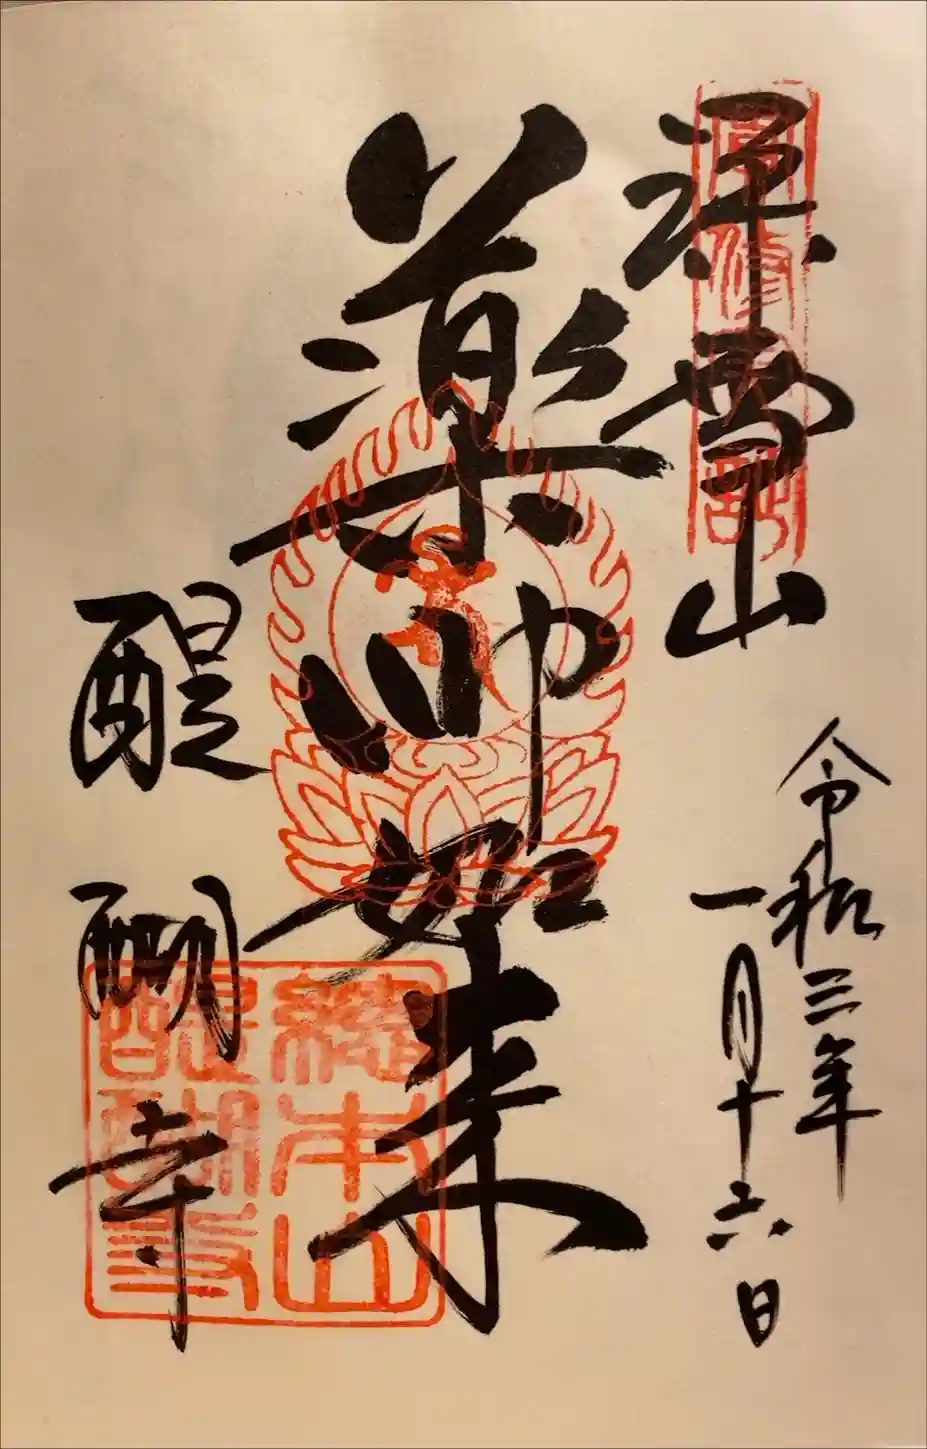 深雪山
令和三年
一月十六日
薬師如来
醍醐寺
総本山
醍醐寺